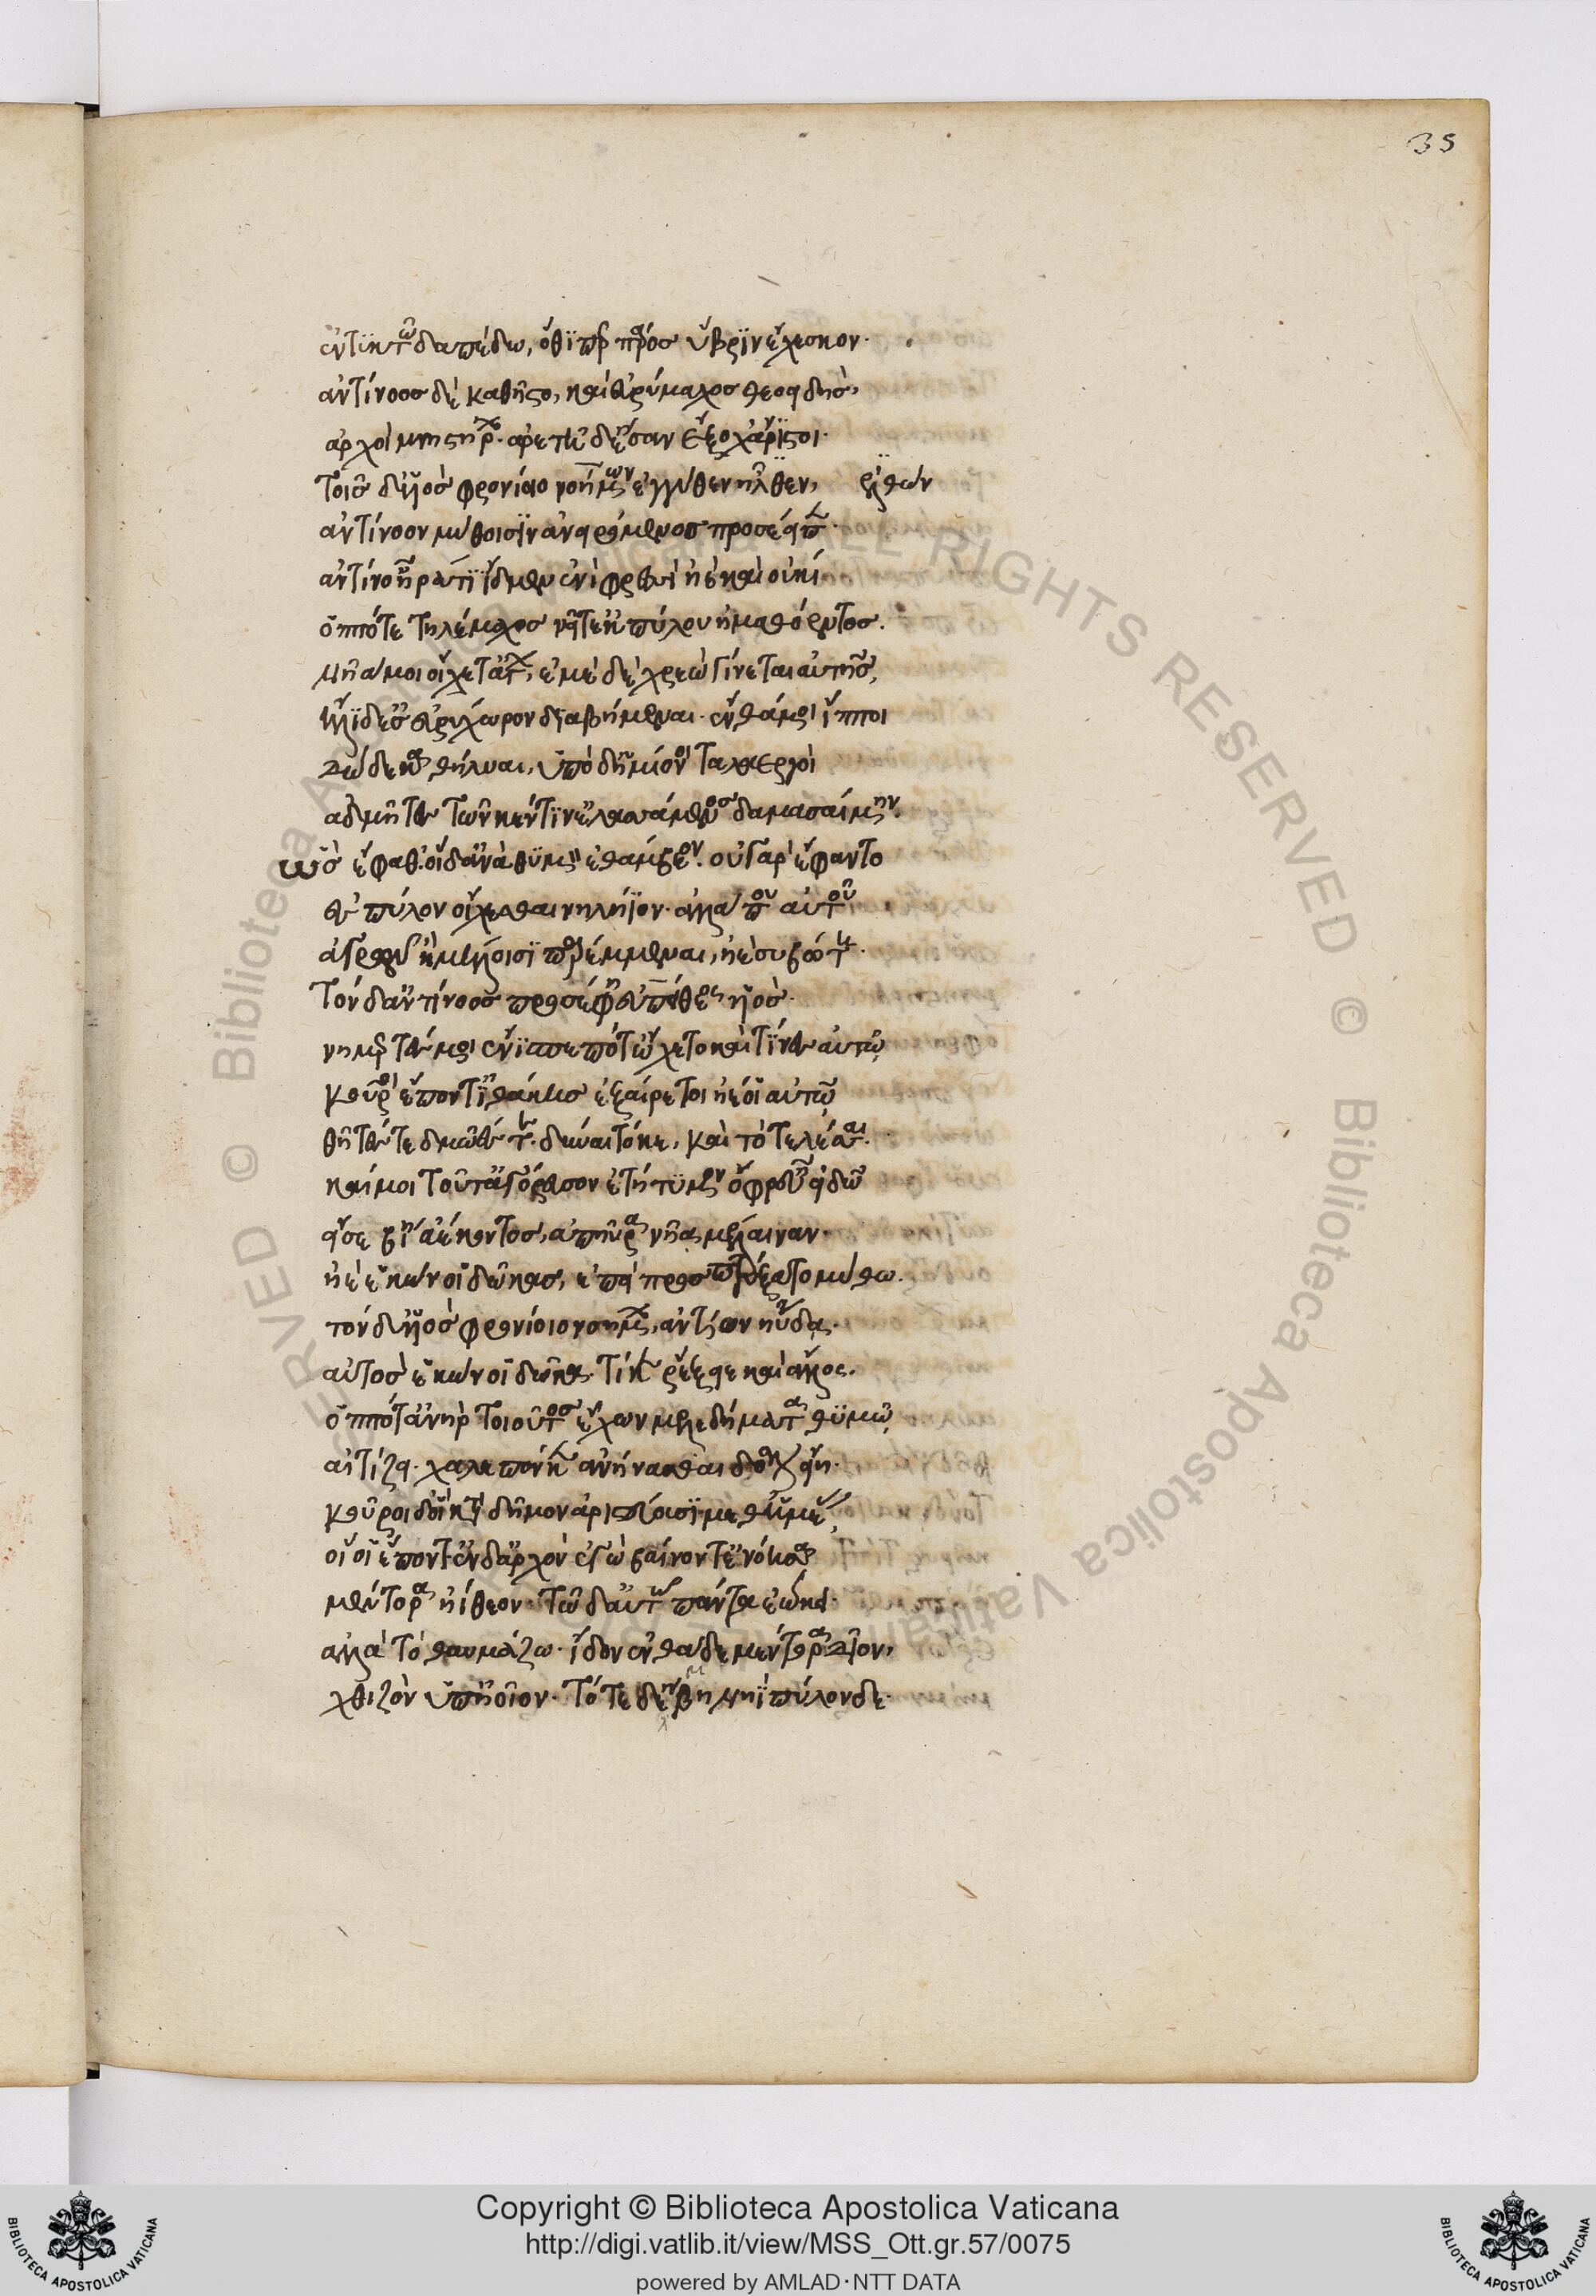 35
ἐν τυκτῶ δαπέδω, ὅθϊ περ πάρος ὕβρϊν ἔχεσκον.
ἀντίνοος δὲ καθῆστο, καὶ εὐρύμαχος θεοειδὴς,
ἀρχοὶ μνηστήρων. ἀρετῆ δ' ἔσαν ἔξοχ' ἄρϊστοι.
τοῖς δ' υἱὸς φρονίοιο νοήμων ἐγγύθεν ἦλθεν, ἐλθὼν
ἀντίνοον μύθοισϊν ἀνειρόμενος προσέειπεν.
ἀντίνο' ἦ ῥά τϊ ἴδμεν ἐνὶ φρεσὶν ἠὲ καὶ οὐκί
ὁππότε τηλέμαχος νεῖτ' ἐκ πύλου ἠμαθόεντος.
νῆα μοι οἴχετ' ἄγων, ἐμὲ δὲ χρεὼ γίνεται αὐτῆς,
ἤλϊδ' ἐς εὐρύχωρον δϊαβήμεναι. ἔνθά μοι ἵπποι
δώδεκα θήλυαι, ὑπὸ δ' ἡμίονοι ταλαεργοὶ
ἀδμῆτες τῶν κέν τϊν' ἐλασάμενος δαμασαίμην.
ὣς ἔφαθ'. οἱ δ' ἀνὰ θυμὸν ἐθάμβεον. οὐ γὰρ ἔφαντο
ἐς πύλον οἴχεσθαι νηλήϊον. ἀλλά που αὐτοῦ
ἀγρῶν ἢ μήλοισϊ παρέμμεναι, ἠὲ συβώτη.
τὸν δ' αὖτ' ἀντίνοος προσέφη εὐπείθεος υἱὸς.
νημερτές μοι ἔνϊσπε πότ' ᾤχετο καὶ τίνες αὐτῷ
κοῦροι ἕποντ' ϊθάκης ἐξαίρετοι ἠὲ οἱ αὐτῷ
θῆτές τε δμῶές τε. δύναιτό κε, καὶ τὸ τελέσσαι.
καί μοι τοῦτ' ἀγόρευσον ἐτήτυμον ὄφρ' εὖ εἰδῶ
εἴ σε βίῃ ἀέκοντος, ἀπηύρα νῆα μέλαιναν.
ἠὲ ἑκών οἱ δῶκας, ἐπεὶ προσπτύξατο μύθω.
τὸν δ' υἱὸς φρονίοιο νοήμων, ἀντίον ηὔδα.
αὐτὸς ἑκών οἱ δῶκα. τί κεν ῥέξειε καὶ ἄλλος.
ὁππότ' ἀνὴρ τοιοῦτος ἔχων μελεδήματα θυμῷ
αἰτίζει. χαλεπόν κεν ἀνήνασθαι δόσιν εἴη.
κοῦροι δ' οἳ κατὰ δῆμον ἀριστεύουσϊ μεθ' ἡμέας
οἵ οἱ ἕποντ'. ἐν δ' ἀρχὸν ἐγὼ βαίνοντ' ἐνόησα
μέντορα ἠὲ θεὸν. τῶ δ' αὐτῶ πάντα ἐώκει.
ἀλλὰ τὸ θαυμάζω. ἴδον ἐνθάδε μέντορα δῖον,
χθιζὸν ὑπηοῖον. τότε δ' ἔμβη νηῒ πύλονδε.
Copyright © Biblioteca Apostolica Vaticana
http://digi.vatlib.it/view/MSS_Ott.gr.57/0075
powered by AMLAD·NTT DATA